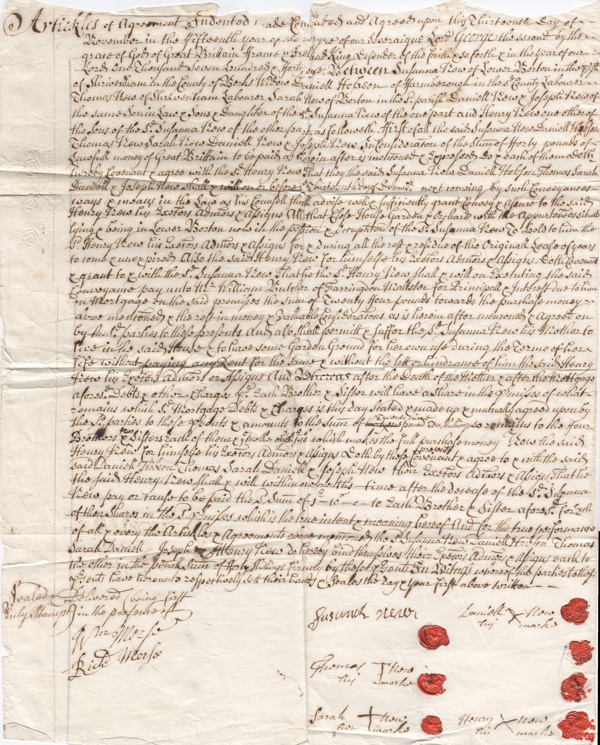 Articles of Agreement Indented made Concluded and Agreed upon this Thirteenth Day of
November in the fifteenth year of the reigne of our Sovereigne Lord George the second by the
grace of God of Great Brittain France & Ireland King Defender of the faith & so forth & in the year of our
Lord One Thousand Seven hundred & forty one Between Susanna New of Lower Borton in the
of Shrivenham in the County of Berks Widow Daniell Hobson of in the County Labourer
Thomas New of Shrivenham Labourer Sarah New of Borton in the Sd parish Daniell New & Joseph New of
the same Son in Law & Sons & Daughter of the Sd Susanna New of the one part and Henry New one other of
the Sons of the Sd Susanna New of the other part as followeth First of all the said Susanna New Daniell
Thomas New Sarah New Daniell New & Joseph New in Consideraton of the Sume of forty pounds of
Lawfull money of Great Brittain to be paid as herein after is mentioned & expressed do & each of them doth
hereby Covenant & agree with the Sd Henry New That they the said Susanna Daniell Thomas Sarah
Daniell & Joseph New shall & will on or before next ensuing by such Conveyances
ways & means in the Law as his Counsell shall advise well & sufficiently grant Convey & assure to the said
Henry New his Exectors Admors & Assigns All that House Garden & Orchard with the Appurtenances
lying & being in Lower Borton now in the possion & occupation of the Sd Susanna New To hold to him the
Sd Henry New his Exectors Admors & Assigns for & during all the rest & residue of the Originall Lease of years
to come & unexpired And the said Henry New for himselfe his Exectors Admors & Assigns Doth Covenant
& grant to & with the Sd Susanna New That he the Sd Henry New shall & will on Executing the said
Conveyance pay unto Mr William Butler of Farringdon Malster for Principall & Interest due to him
on Mortgage on the said premises the sume of Twenty four pounds towards the purchase money
above mentioned & the rest in money & Valuable Considerations as is herein after mentioned & Agreed on
by the Sd parties to these presents And also shall permitt & suffer the Sd Susanna New his Mother to
live in the said House & to have some Garden Ground for her own use during the Terme of her
Life without paying any Rent for the same & without the lett or hinderance of him the said Henry
New his Exectors Admors or Assigns And Whereas after the Death of the Mother & after the Mortgage
aforesd Debts & other Charges Each Brother & Sister will have a share in the premises of what
remains which Sd Mortgage Debts & Charges is this day stated & made up & mutually agreed upon
by the Sd parties to these presents & amounts to the Sum of so remains to the four
Brothers & Sisters each of them which makes the full purchase money Now the said
Henry New for himselfe his Exectors Admors & Assigns doth by these presents Covenant & agree to & with the said
said Daniell Thomas Sarah Daniell & Joseph New their Exectors Admors & Assigns That he
the said Henry New shall & will within time after the decease of the Sd Susanna
New pay or cause to be paid the Sume of to Each Brother & Sister aforesd for each
of their Shares in the Sd premises which is the true intent & meaning hereof And for the true performance
of all & every the Articles & Agreements above mentioned the Sd Susanna New Daniell Thomas
Sarah Daniell Joseph & Henry New do hereby bind themselves their Exectors Admors & Assigns each to
the other in the penall Sum of Forty Shillings firmly by these presents In Witness whereof the parties to these
presents have hereunto respectively sett their hands & Seales the Day & year first above written
Sealed & Delivered being first
Duly Stampt in the presence of
Wm Morse
Richd Morse
Susannah Newe
Daniell New
his marke
Thomas New
his marke
Sarah New
her marke
Henry New
his marke